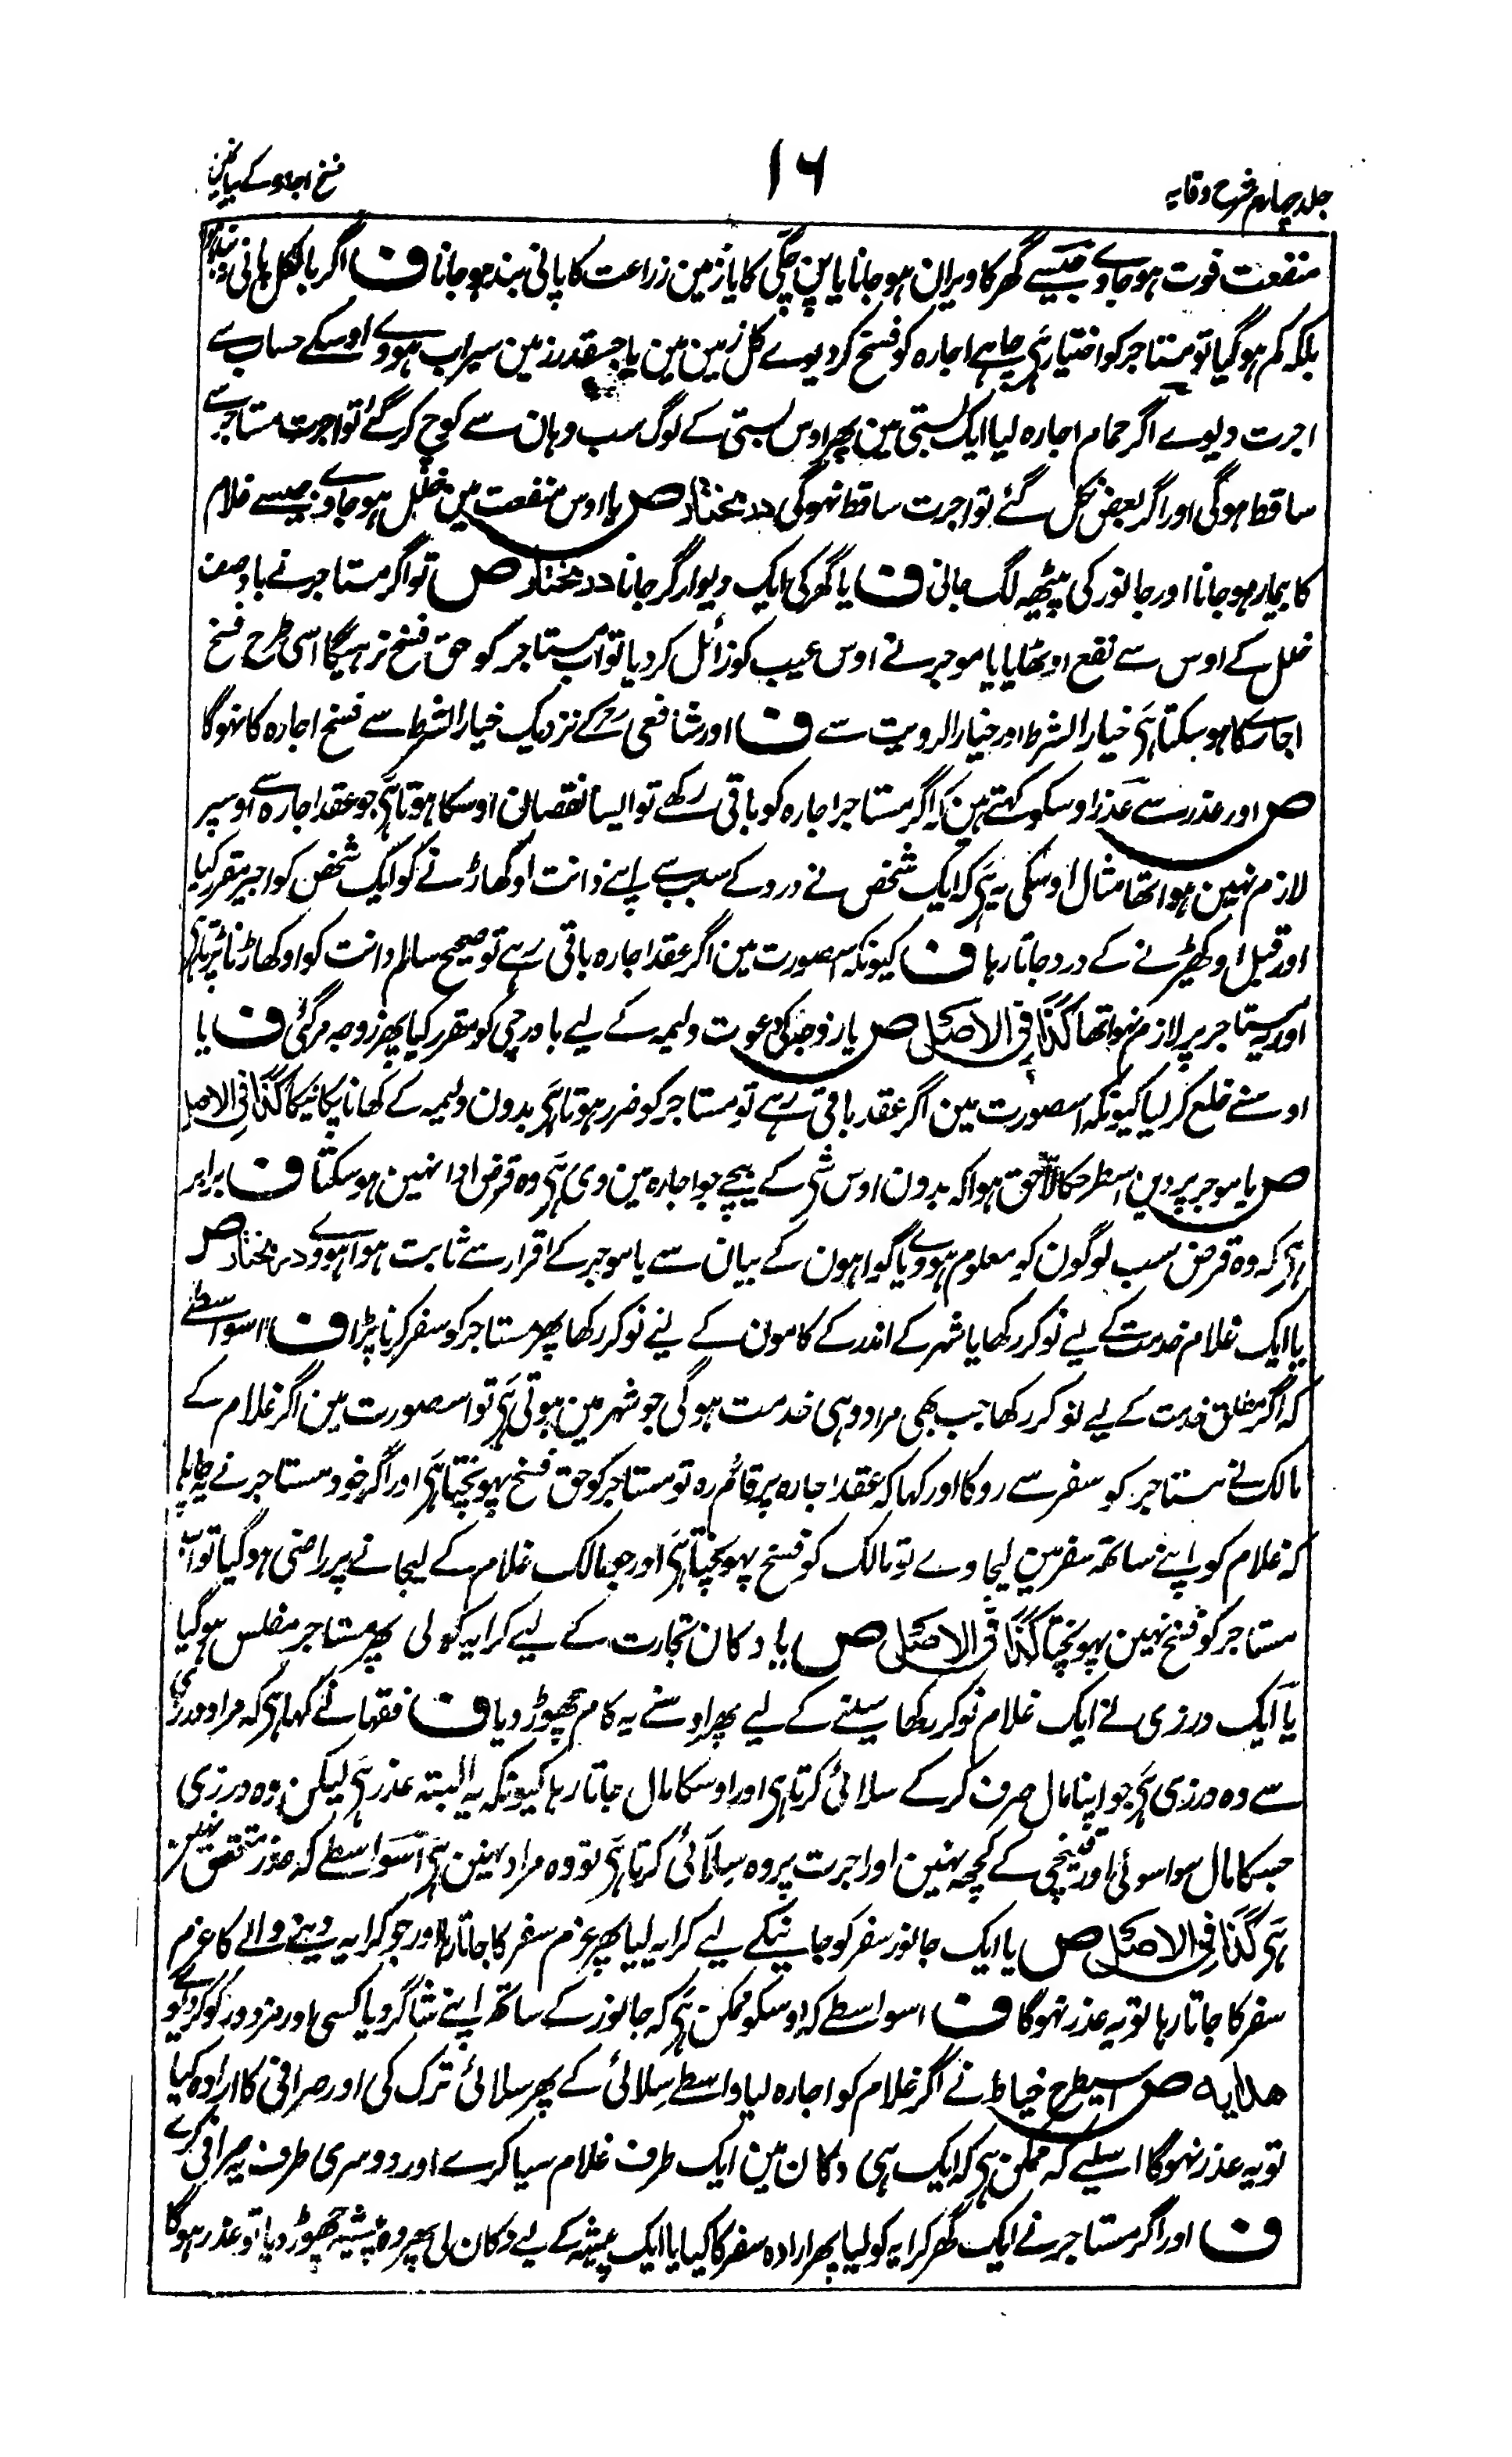 جلد چہارم شرح وقایہ
۱۶
فسخ اجارہ کے بیان مین
منفعت فوت ہو جاوے جیسے گھر کا ویران ہو جانا یا پن چکی کا یا زمین زراعت کا پانی بند ہو جانا ف اگر بالکل پانی
بلکہ کم ہو گیا تو مستاجر کو اختیار ہی چاہے اجارہ کو فسخ کر دیوے کل زمین مین یا جسقدر زمین سیراب ہووے اوسکے حساب سے
اجرت دیوے اگر حمام اجارہ لیا ایک بستی مین پھر اوس بستی کے لوگ سب وہان سے کوچ کر گئے تو اجرت مستاجر سے
ساقط ہوگی اور اگر بعض نکل گئے تو اجرت ساقط نہوگی در مختار ص یا اوس منفعت مین خلل ہو جاوے جیسے غلام
کا بیمار ہو جانا اور جانور کی پیٹھ لگ جانی ف یا گھر کی ایک دیوار گر جانا در مختار ص تو اگر مستاجر نے باوصف
خلل کے اوس سے نفع اوٹھایا یا موجر نے اوس عیب کو زائل کر دیا تو اب مستاجر کو حق فسخ نرہیگا اسی طرح فسخ
اجارے کا ہو سکتا ہی خیار الشرط اور خیار الرویت سے ف اور شافعی رح کے نزدیک خیار الشرط سے فسخ اجارہ کا نہوگا
ص اور عذر سے عذر اوسکو کہتے ہین کہ اگر مستاجر اجارہ کو باقی رکھے تو ایسا نقصان اوسکا ہوتا ہی جو عقد اجارہ سے اوسپر
لازم نہین ہوا تھا مثال اوسکی یہ ہی کہ ایک شخص نے درد کے سبب سے اپنے دانت اوکھاڑنے کو ایک شخص کو اجیر مقرر کیا
اور قبل اوکھیڑنے کے درد جاتا رہا ف کیونکہ اس صورت مین اگر عقد اجارہ باقی رہے تو صحیح سالم دانت کو اوکھاڑنا پڑتا ہی
اور یہ مستاجر پر لازم نہوا تھا کذا فی الاصل ص یا زوجہ کی دعوت ولیمہ کے لیے باورچی کو مقرر کیا پھر زوجہ مر گئی ف یا
اوسنے خلع کر لیا کیونکہ اسصورت مین اگر عقد باقی رہے تو مستاجر کو ضرر ہوتا ہی بدون ولیمہ کے کھانا پکانیکا کذا فی الاصل
ص یا موجر پر دین اسطرح کا لاحق ہوا کہ بدون اوس شی کے بیچے جو اجارہ مین دی ہی وہ قرض ادا نہین ہو سکتا ف برابر
ہی کہ وہ قرض سب لوگون کو معلوم ہووے یا گواہون کے بیان سے یا موجر کے اقرار سے ثابت ہوا ہووے در مختار ص
یا ایک غلام خدمت کے لیے نوکر رکھا یا شہر کے اندر کے کامون کے لیے نوکر رکھا پھر مستاجر کو سفر کرنا پڑا ف اسواسطے
کہ اگر مطلق خدمت کے لیے نوکر رکھا جب بھی مراد وہی خدمت ہوگی جو شہر مین ہوتی ہی تو اسصورت مین اگر غلام کے
مالک نے مستاجر کو سفر سے روکا اور کہا کہ عقد اجارہ پر قائم رہ تو مستاجر کو حق فسخ پہونچتا ہی اور اگر خود مستاجر نے یہ چاہا
کہ غلام کو اپنے ساتھ سفر مین لیجاوے تو مالک کو فسخ پہونچتا ہی اور جب مالک غلام کے لیجانے پر راضی ہو گیا تو اب
مستاجر کو فسخ نہین پہونچتا کذا فی الاصل ص یا دکان تجارت کے لیے کرایہ کو لی پھر مستاجر مفلس ہو گیا
یا ایک درزی نے ایک غلام نوکر رکھا سینے کے لیے پھر اوسنے یہ کام چھوڑ دیا ف فقہا نے کہا ہی کہ مراد درزی
سے وہ درزی ہی جو اپنا مال صرف کر کے سلائی کرتا ہی اور اوسکا مال جاتا رہا کیونکہ یہ البتہ عذر ہی لیکن وہ درزی
جسکا مال سوا سوئی اور قینچی کے کچھ نہین اور اجرت پر وہ سلائی کرتا ہی تو وہ مراد نہین ہی اسواسطے کہ عذر متحقق نہین
ہی کذا فی الاصل ص یا ایک جانور سفر کو جانیکے لیے کرایہ لیا پھر عزم سفر کا جاتا رہا اور جو کرایہ دینے والے کا عزم
سفر کا جاتا رہا تو یہ عذر نہوگا ف اسواسطے کہ اوسکو ممکن ہی کہ جانور کے ساتھ اپنے شاگرد یا کسی اور مزدور کو کر دیوے
ہدایہ ص اسیطرح خیاط نے اگر غلام کو اجارہ لیا واسطے سلائی کے پھر سلائی ترک کی اور صرافی کا ارادہ کیا
تو یہ عذر نہوگا اسلیے کہ ممکن ہی کہ ایک ہی دکان مین ایک طرف غلام سیا کرے اور دوسری طرف یہ صرافی کرے
ف اور اگر مستاجر نے ایک گھر کرایہ کو لیا پھر ارادہ سفر کا کیا یا ایک پیشہ کے لیے دکان لی پھر وہ پیشہ چھوڑ دیا تو عذر ہوگا